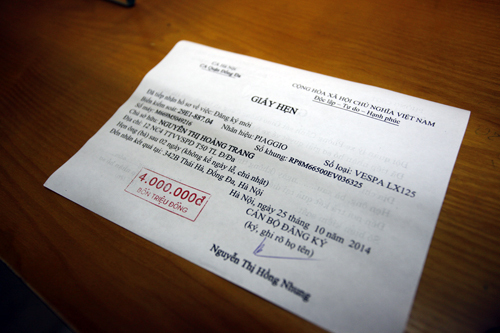 CA Quận Đống Đa
CỘNG HÒA XÃ HỘI CHỦ NGHĨA VIỆT NAM
Độc lập - Tự do - Hạnh phúc
GIẤY HẸN
Đã tiếp nhận hồ sơ về việc: Đăng ký mới
Biển kiểm soát: 29E1-887.04 Nhãn hiệu: PIAGGIO Số loại: VESPA LX125
Số máy: Số khung: RP8M66500EV036325
Chủ sở hữu: NGUYỄN THỊ HOÀNG TRANG
Địa chỉ: 12 NC4 TTVVSPD T50 TL Đ/Đa
Hẹn ông (bà) sau 02 ngày (không kể ngày lễ, chủ nhật)
Đến nhận kết quả tại: 382B Thái Hà, Đống Đa, Hà Nội
Hà Nội, ngày 25 tháng 10 năm 2014
4.000.000đ
BỐN TRIỆU ĐỒNG
CÁN BỘ ĐĂNG KÝ
(ký, ghi rõ họ tên)
Nguyễn Thị Hồng Nhung